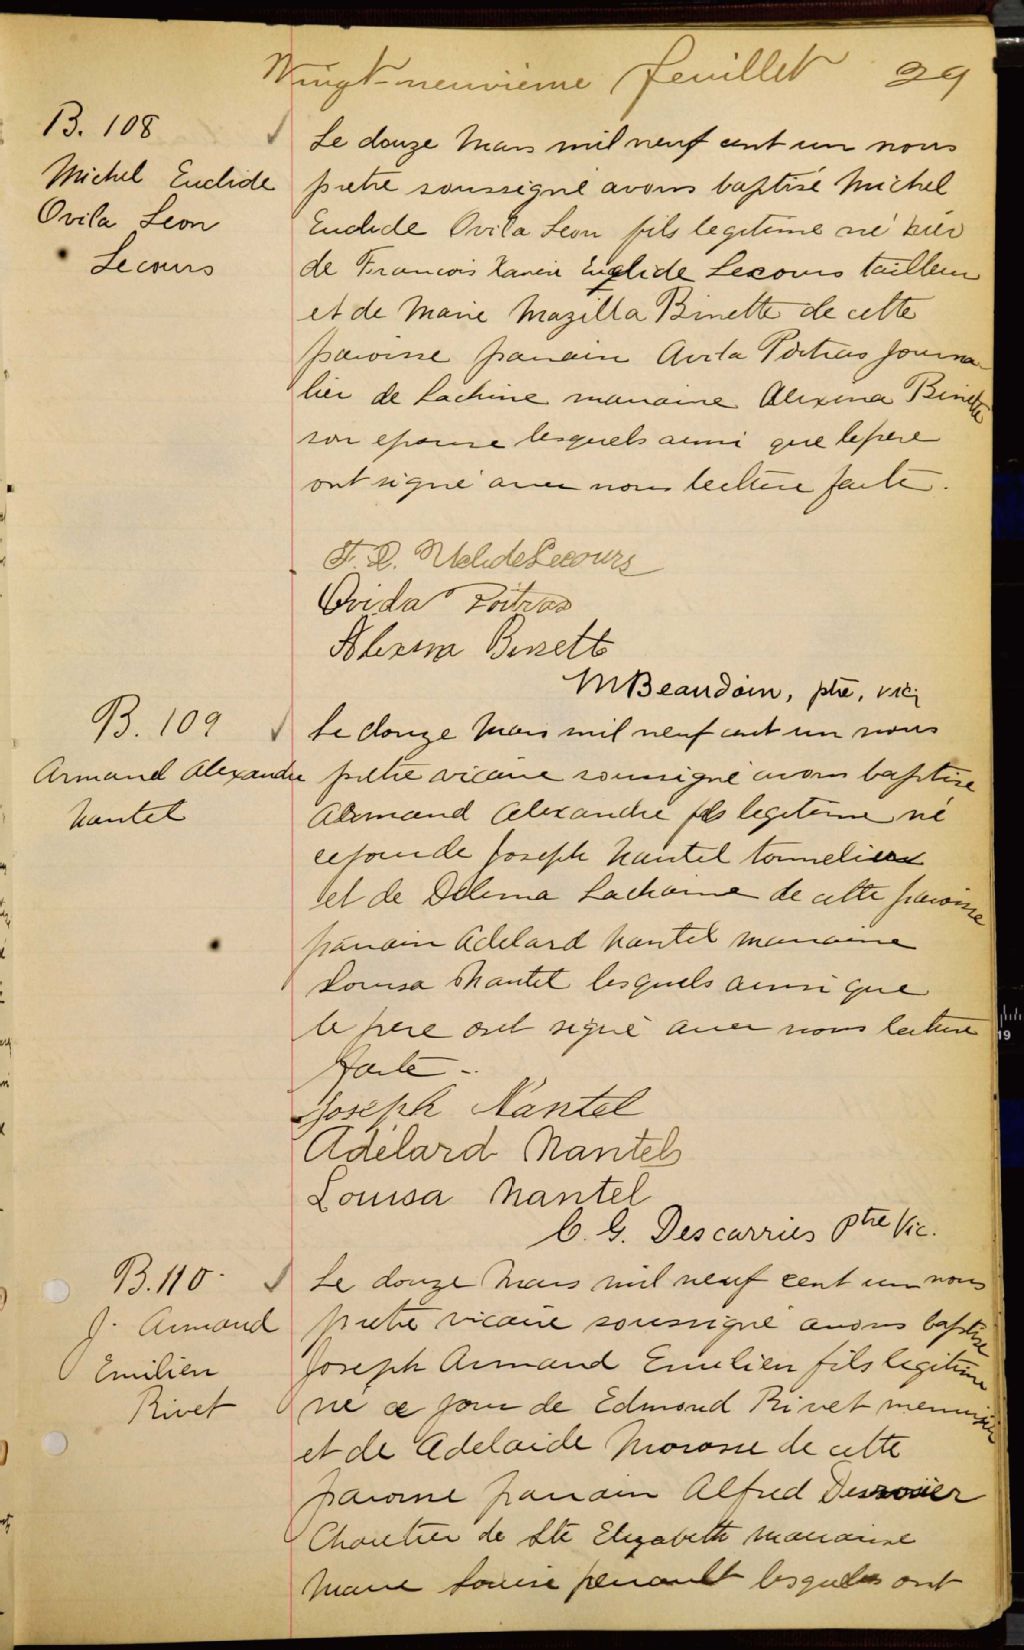 Vingt-neuvième feuillet 29
B. 108
Michel Euclide
Ovila Leon
Lecours
Le douze Mars mil neuf cent un nous
pretre soussigné avons baptisé Michel
Euclide Ovila Leon fils legitime né hier
de Francois Xavier Euclide Lecours tailleur
et de Marie Mazilla Binette de cette
paroisse parrain Avila Poitras journa-
lier de Lachine marraine Alexina Binette
son epouse lesquels ainsi que le pere
ont signé avec nous lecture faite.
Lecours
Ovida Poitras
Alexina Binette
M Beaudoin, ptre, vic,
B. 109
Armand Alexandre
Nantel
Le douze Mars mil neuf cent un nous
pretre vicaire soussigné avons baptise
Armand Alexandre fils legitime né
ce jour de Joseph Nantel tonnelier
et de Delima Lachaine de cette paroisse
parrain Adelard Nantel marraine
Louisa Nantel lesquels ainsi que
le pere ont signé avec nous lecture
faite -
Joseph Nantel
Adélard Nantel
Louisa Nantel
C. G. Descarries Ptre Vic.
B. 110
J. Armand
Emilien
Rivet
Le douze Mars mil neuf cent un nous
pretre vicaire soussigné avons baptise
Joseph Armand Emilien fils legitime
né ce jour de Edmond Rivet menuisier
et de Adelaide Morasse de cette
paroisse parrain Alfred Desrosier
Chartier de Ste Elizabeth marraine
Marie Louise perrault lesquels ont